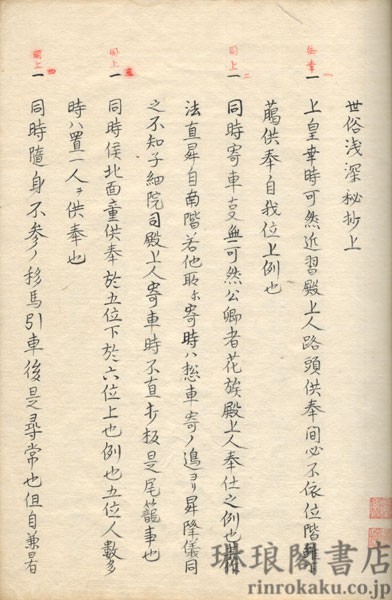 世俗浅深秘抄上
一上皇幸時可然近習殿上人路頭供奉間必不依位階雖
萬供奉自我位上例也
一同時寄車事無可然公卿者花族殿上人奉仕之例也
法直昇自南階若他所ニ寄時ハ惣車寄ノ邊ヨリ昇降儀同
之不知子細院司殿上人寄車時不直打板是尾籠事也
一同時侯北面童供奉於五位下於六位上也例也五位人數多
時ハ置一人ヲ供奉也
一同時隨身不參ノ移馬引車後是尋常也但自兼
御幸 一
同上 二
同上 三
同上 四
琳琅閣書店
rinrokaku.co.jp